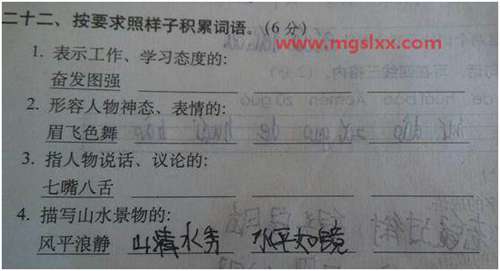 二十二、按要求照样子积累词语。(6分)
www.mgslxx.com
1. 表示工作、学习态度的:
奋发图强
2. 形容人物神态、表情的:
眉飞色舞
3. 指人物说话、议论的:
七嘴八舌
4. 描写山水景物的:
风平浪静 山清水秀 水平如镜